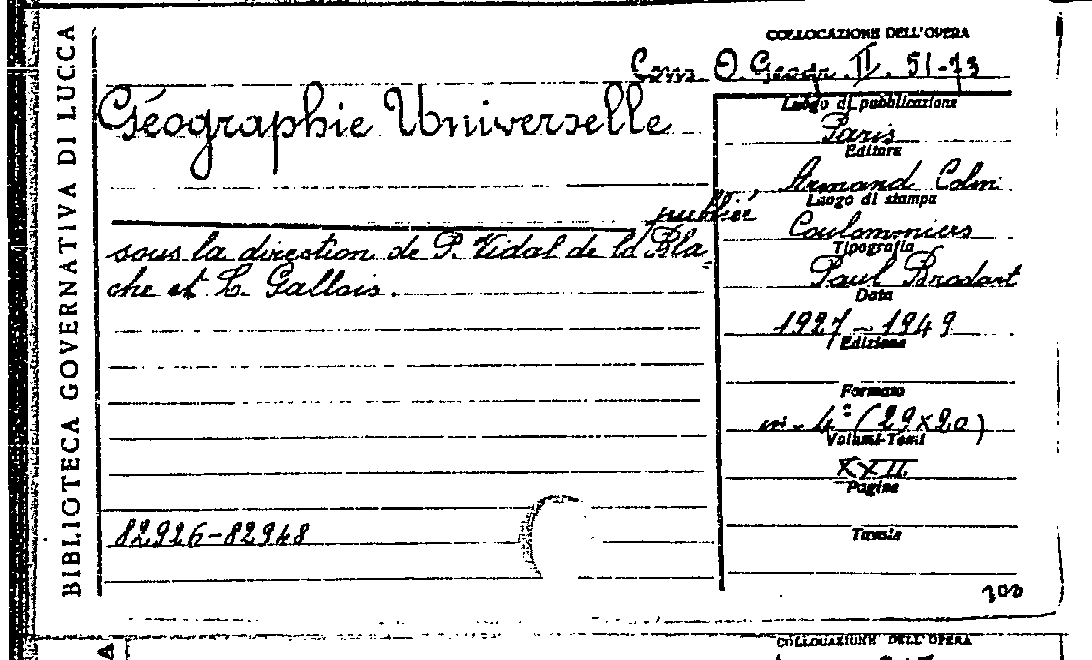 BIBLIOTECA GOVERNATIVA DI LUCCA
COLLOCAZIONE DELL'OPERA
Cons. O. Geogr. II. 51-73
Géographie Universelle
publié
sous la direction de P. Vidal de la Bla-
che et L. Gallois.
82926-82948
Luogo di pubblicazione
Paris
Editore
Armand Colin
Luogo di stampa
Coulommiers
Tipografia
Paul Brodart
Data
1927-1949
Edizione
Formato
in-4° (29x20)
Volumi-Tomi
XXII
Pagine
Tavole
COLLOCAZIONE DELL'OPERA